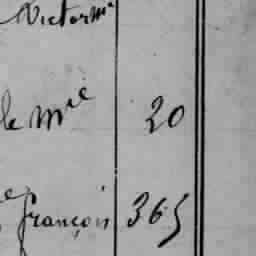 Victorine
le mie 20
françois 365